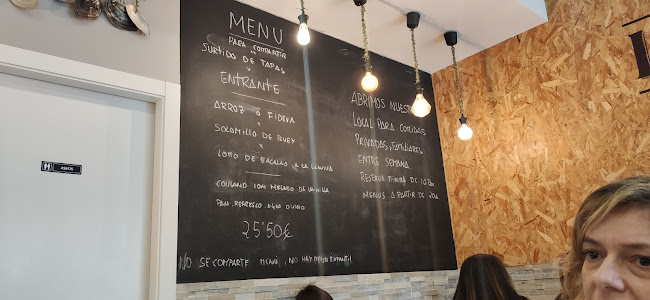 MENU
PARA COMPARTIR
SURTIDO DE TAPAS
Y
ENTRANTE
ARROZ O FIDEVA
O
SOLOMILLO DE BUEY
O
LOMO DE BACALAO A LA
COULAND CON HELADO DE VAINILLA
PAN, REFRESCO, AGUA O VINO
25'50€
NO SE COMPARTE MENÚ, NO HAY MENU INFANTIL
ABRIMOS NUESTRO
LOCAL PARA COMIDAS
PRIVADAS, FAMILIARES
ENTRE SEMANA.
RESERVA MINIMA DE 10
MENUS A PARTIR DE 20
ASEOS